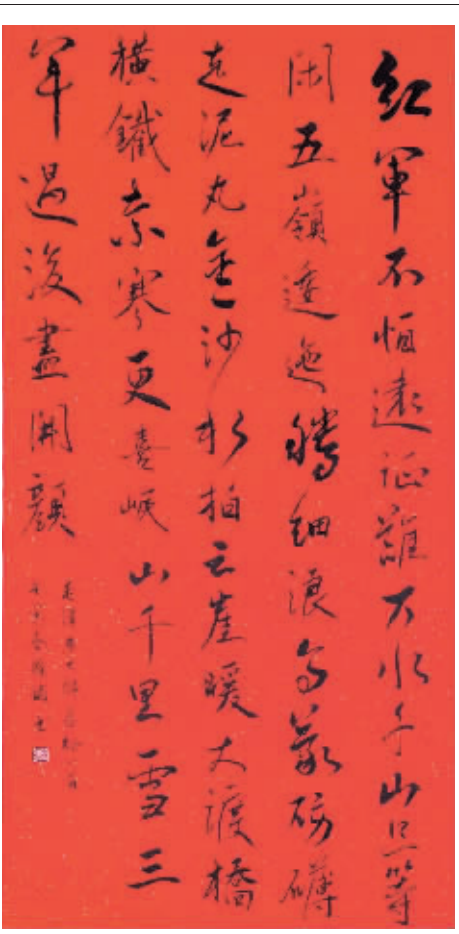 紅軍不怕遠征難万水千山只等
閑五嶺逶迤騰細浪烏蒙磅礴
走泥丸金沙水拍云崖暖大渡橋
橫鐵索寒更喜岷山千里雪三
軍過後盡開顏